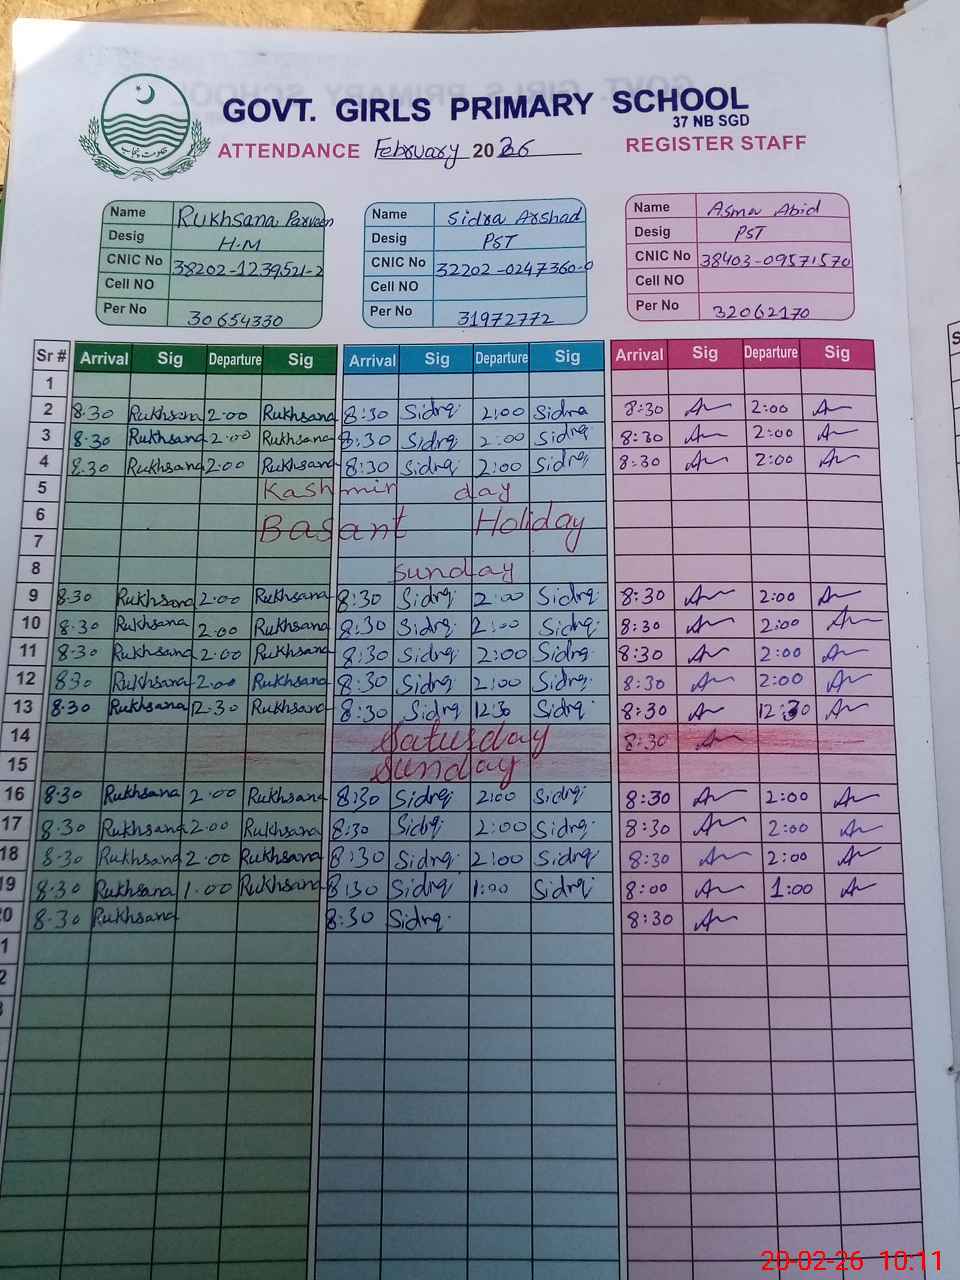 GOVT. GIRLS PRIMARY SCHOOL
37 NB SGD
ATTENDANCE February 2026 REGISTER STAFF
حکومت پنجاب
Name Rukhsana Parveen Name Sidra Arshad Name Asma Abid
Desig H-M Desig PST Desig PST
CNIC No 38202-1239521-2 CNIC No 32202-0247360-0 CNIC No 38403-09571570
Cell NO Cell NO Cell NO
Per No 30654330 Per No 31972772 Per No 32062170
Sr # Arrival Sig Departure Sig Arrival Sig Departure Sig Arrival Sig Departure Sig
1
2 8.30 Rukhsana 2.00 Rukhsana 8:30 Sidra 2:00 Sidra 8:30 2:00
3 8.30 Rukhsana 2.00 Rukhsana 8:30 Sidra 2:00 Sidra 8:30 2:00
4 8.30 Rukhsana 2.00 Rukhsana 8:30 Sidra 2:00 Sidra 8:30 2:00
5 Kashmir day
6 Basant Holiday
7
8 Sunday
9 8.30 Rukhsana 2.00 Rukhsana 8:30 Sidra 2:00 Sidra 8:30 2:00
10 8.30 Rukhsana 2.00 Rukhsana 8:30 Sidra 2:00 Sidra 8:30 2:00
11 8.30 Rukhsana 2.00 Rukhsana 8:30 Sidra 2:00 Sidra 8:30 2:00
12 8.30 Rukhsana 2.00 Rukhsana 8:30 Sidra 2:00 Sidra 8:30 2:00
13 8.30 Rukhsana 12.30 Rukhsana 8:30 Sidra 12:30 Sidra 8:30 12:30
14 Saturday 8:30
15 Sunday
16 8.30 Rukhsana 2.00 Rukhsana 8:30 Sidra 2:00 Sidra 8:30 2:00
17 8.30 Rukhsana 2.00 Rukhsana 8:30 Sidra 2:00 Sidra 8:30 2:00
18 8.30 Rukhsana 2.00 Rukhsana 8:30 Sidra 2:00 Sidra 8:30 2:00
19 8.30 Rukhsana 1.00 Rukhsana 8:30 Sidra 1:00 Sidra 8:00 1:00
20 8.30 Rukhsana 8:30 Sidra 8:30
20-02-26 10:11